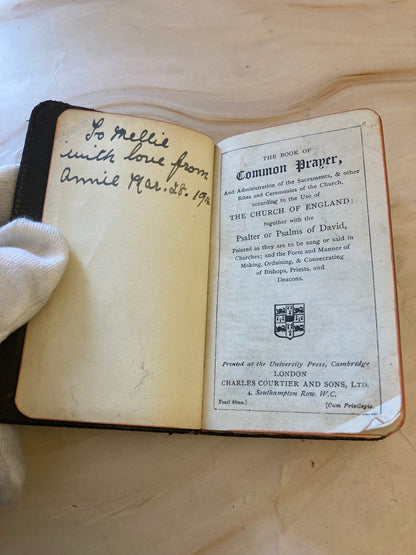 To Mellie
with love from
Annie Mar. 28. 19
THE BOOK OF
Common Prayer,
And Administration of the Sacraments, & other
Rites and Ceremonies of the Church,
according to the Use of
THE CHURCH OF ENGLAND:
together with the
Psalter or Psalms of David,
Pointed as they are to be sung or said in
Churches; and the Form and Manner of
Making, Ordaining, & Consecrating
of Bishops, Priests, and
Deacons.
Printed at the University Press, Cambridge
LONDON
CHARLES COURTIER AND SONS, LTD.
4, Southampton Row, W.C.
Pearl 48mo.] [Cum Privilegio.